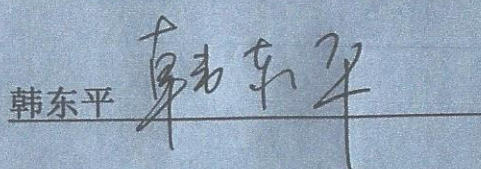 韩东平 韩东平